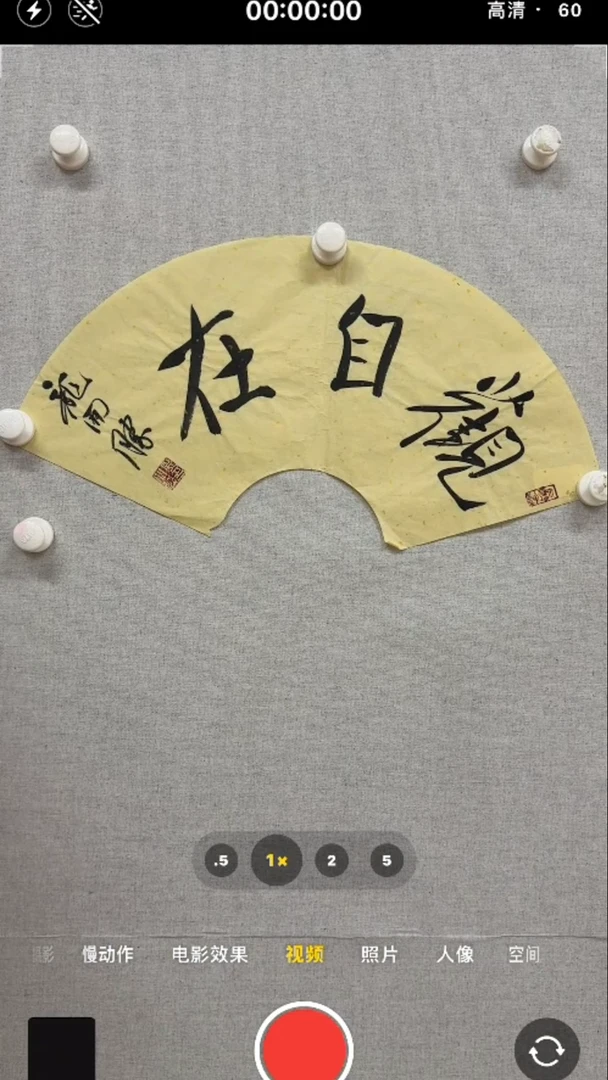 00:00:00
高清 · 60
觀自在
.5 1× 2 5
慢动作 电影效果 视频 照片 人像 空间